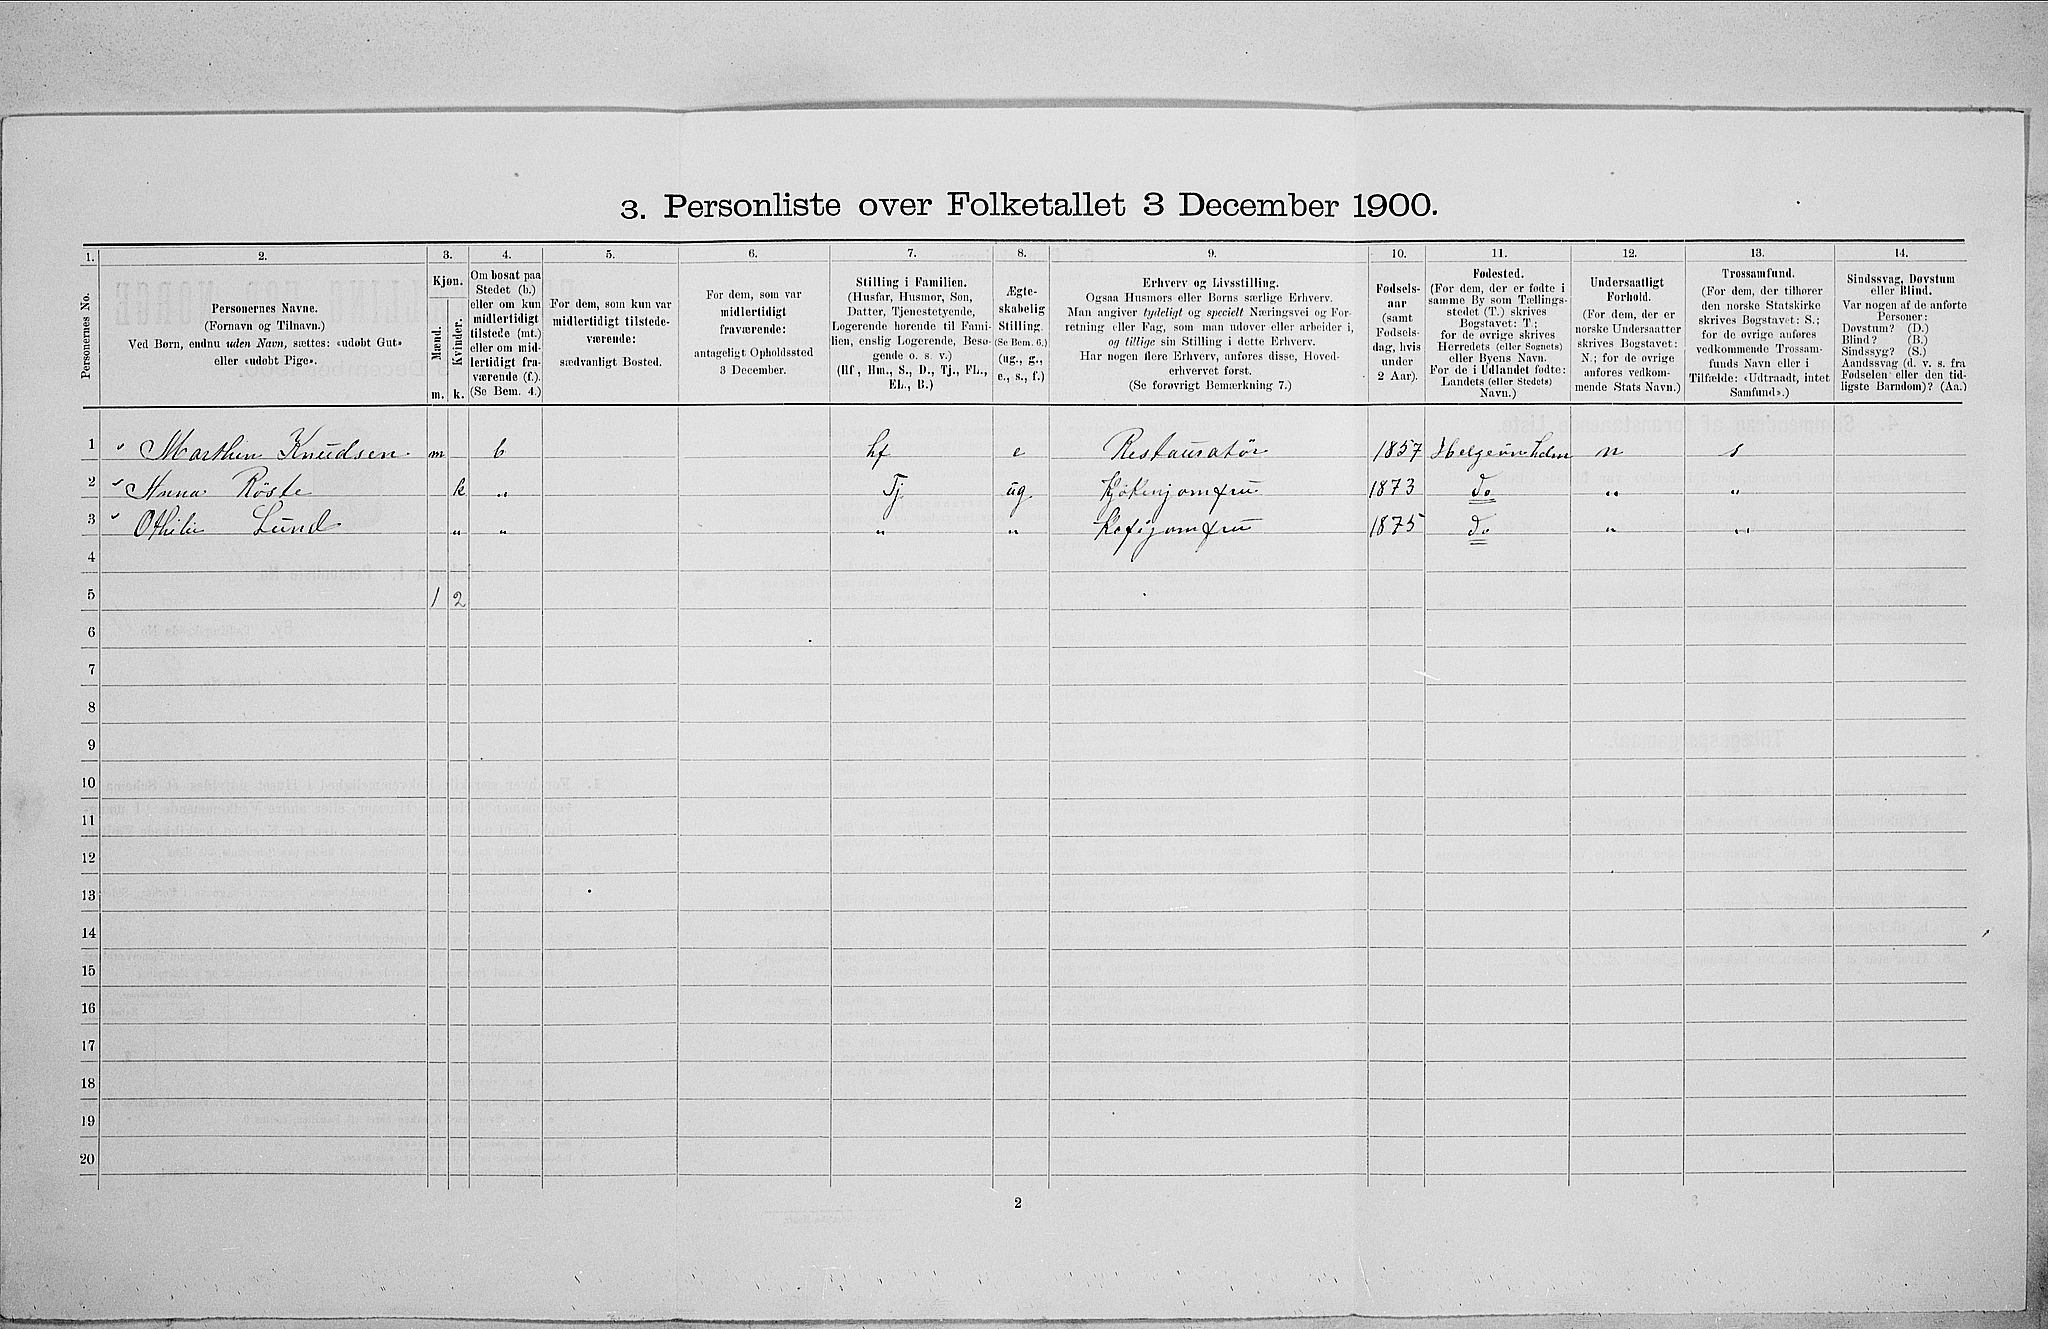 3. Personliste over Folketallet 3 December 1900.
1. 2. 3. 4. 5. 6. 7. 8. 9. 10. 11. 12. 13. 14.
Personernes No.
Personernes Navne.
(Fornavn og Tilnavn.)
Ved Børn, endnu uden Navn, sættes: «udøbt Gut»
eller «udøbt Pige».
Kjøn.
Mænd.
Kvinder.
m. k.
Om bosat paa
Stedet (b.)
eller om kun
midlertidigt
tilstede (mt.)
eller om mid-
lertidigt fra-
værende (f.).
(Se Bem. 4.)
For dem, som kun var
midlertidigt tilstede-
værende:
sædvanligt Bosted.
For dem, som var
midlertidigt
fraværende:
antageligt Opholdssted
3 December.
Stilling i Familien.
(Husfar, Husmor, Søn,
Datter, Tjenestetyende,
Logerende hørende til Fami-
lien, enslig Logerende, Besø-
gende o. s. v.)
(Hf., Hm., S., D., Tj., FL.,
EL., B.)
Ægte-
skabelig
Stilling.
(Se Bem. 6.)
(ug., g.,
e., s., f.)
Erhverv og Livsstilling.
Ogsaa Husmors eller Børns særlige Erhverv.
Man angiver tydeligt og specielt Næringsvei og For-
retning eller Fag, som man udøver eller arbeider i,
og tillige sin Stilling i dette Erhverv.
Har nogen flere Erhverv, anføres disse, Hoved-
erhvervet først.
(Se forøvrigt Bemærkning 7.)
Fødsels-
aar
(samt
Fødsels-
dag, hvis
under
2 Aar).
Fødested.
(For dem, der er fødte i
samme By som Tællings-
stedet (T.) skrives
Bogstavet: T;
for de øvrige skrives
Herredets (eller Sognets)
eller Byens Navn.
For de i Udlandet fødte:
Landets (eller Stedets)
Navn.)
Undersaatligt
Forhold.
(For dem, der er
norske Undersaatter
skrives Bogstavet:
N.; for de øvrige
anføres vedkom-
mende Stats Navn.)
Trossamfund.
(For dem, der tilhører
den norske Statskirke
skrives Bogstavet: S.;
for de øvrige anføres
vedkommende Trossam-
funds Navn eller i
Tilfælde: «Udtraadt, intet
Samfund».)
Sindssvag, Døvstum
eller Blind.
Var nogen af de anførte
Personer:
Døvstum? (D.)
Blind? (B.)
Sindssyg? (S.)
Aandssvag (d. v. s. fra
Fødselen eller den tid-
ligste Barndom)? (Aa.)
1 Marthin Knudsen m b hf e Restauratør 1857 n s
2 Anna Röste k " Tj ug. Kjökenjomfru 1873 do " "
3 Othilie Lund " " " " Kafijomfru 1875 do " "
4
5 1 2
6
7
8
9
10
11
12
13
14
15
16
17
18
19
20
2